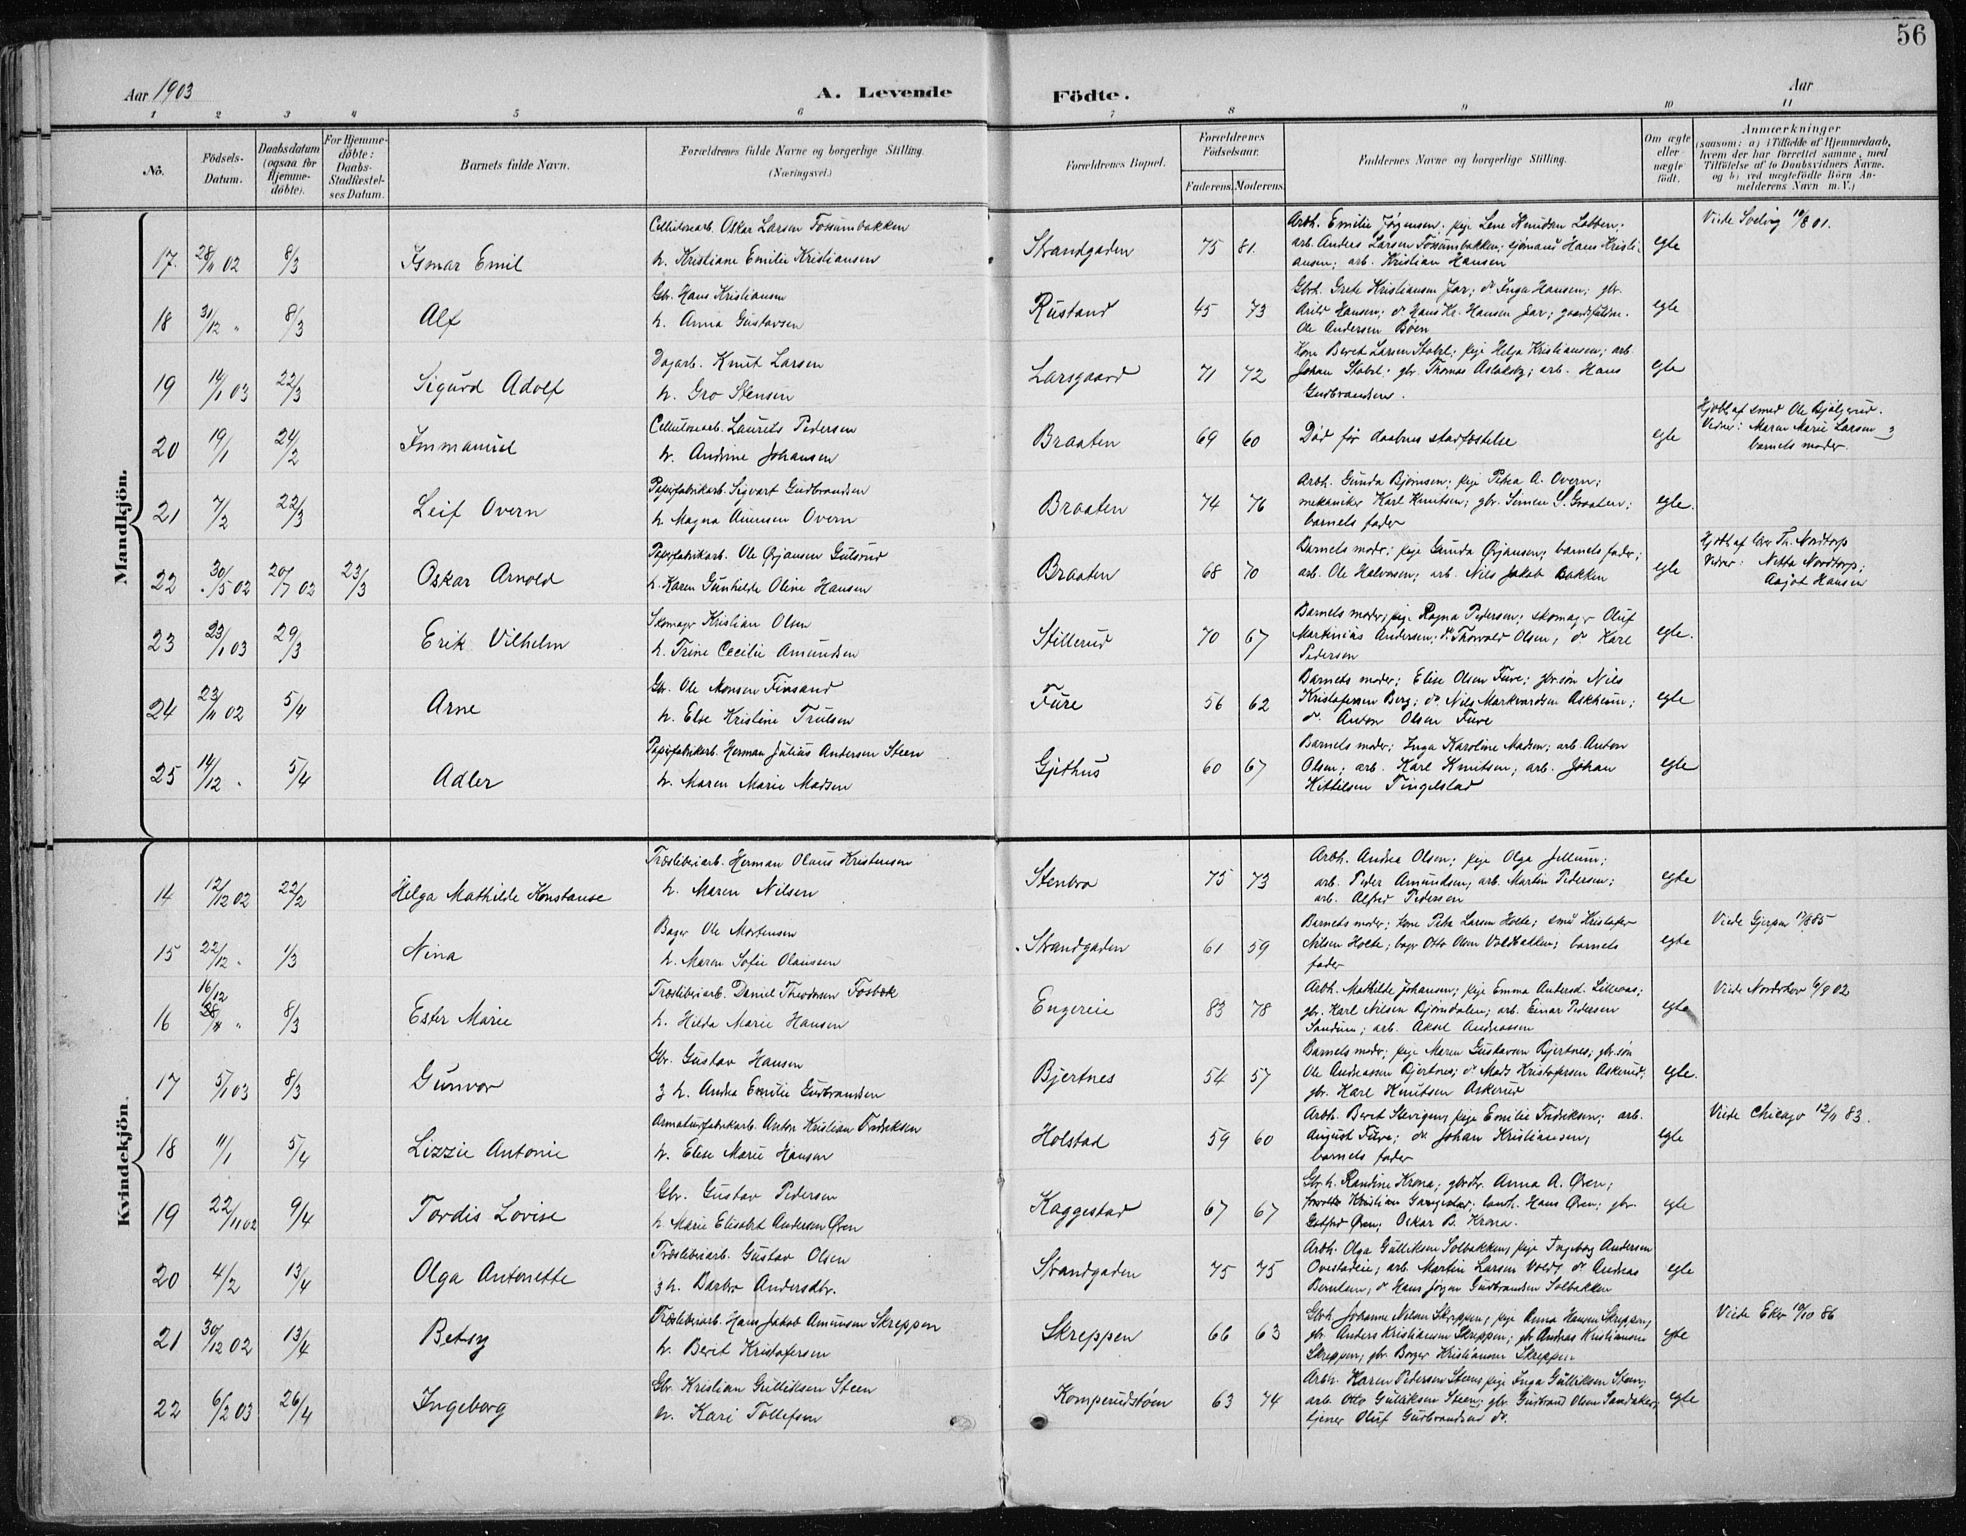 56
Aar 1903
A. Levende
Födte.
Aar
1 2 3 4 5 6 7 8 9 10 11
No.
Födsels-Datum.
Daabsdatum (ogsaa for Hjemme-döbte).
For Hjemme-döbte: Daabs-Stadfæstel-ses Datum.
Barnets fulde Navn.
Forældrenes fulde Navne og borgerlige Stilling. (Næringsvei.)
Forældrenes Bopæl.
Forældrenes Födselsaar.
Faderens. Moderens.
Faddernes Navne og borgerlige Stilling.
Om ægte eller uægte födt.
Anmærkninger
(saasom: a) i Tilfælde af Hjemmedaab,
hvem der har forrettet samme, med
Tilföielse af to Daabsvidners Navne.
og b) ved uægtefödte Börn An-
melderens Navn m. V.)
Mandkjön.
Cellulosearb. Oskar Larsen Fossumbakken
17. 28/11 02 8/3 Ismar Emil h. Kristiane Emilie Kristiansen Strandgaden 75 81. egte
Arbh. Emilie Jørgensen; pige Lene Knudsen Løbben;
arb. Anders Larsen Fossumbakken; sjømand Hans Kristi-
ansen; arb. Kristian Hansen
Viede Solvig 10/8 01.
Gbr. Hans Kristiansen
18 31/12 " 8/3 Alf h. Anna Gustavsen Rustand 45 73 egte
Gbrh. Grete Kristiansen Jar; do Inga Hansen; gbr.
Arild Hansen; do Hans Kr. Hansen Jar; gaardsfuldm.
Ole Andersen Boen
Dagarb. Knut Larsen
19 14/1 03 22/3 Sigurd Adolf h. Gro Stensen Larsgaard 71 72 egte
Kone Beret Larsen Stabel; pige Helga Kristiansen; arb.
Johan Stabel; gbr. Thomas Aslaksby; arb. Hans
Gudbrandsen.
Cellulosearb. Laurits Pedersen
20 19/1 24/2 Immanuel h. Andrine Johansen Braaten 69 60 Død før daabens stadfæstelse egte
Hjdøbt af smed Ole Bjølgerud.
Vidner: Maren Marie Larsen og
barnets moder.
Papirfabrikarb. Sigvart Gudbrandsen
21 7/2 22/3 Leif Overn h. Magna Amunsen Overn Braaten 74 76 egte.
Arbh. Gunda Bjørnsen; pige Petra A. Overn;
mekaniker Karl Knutsen; gbr. Simen S. Graaten;
barnets fader
Papirfabrikarb. Ole Ørjansen Gulsrud
22 30/5 02 20/7 02 23/3 Oskar Arnold h. Karen Gunhilde Oline Hansen Braaten 68 70 egte
Barnets moder; pige Gunda Ørjansen; barnets fader;
arb. Ole Halvorsen; arb. Nils Jakob Bakken
Hjdøbt af lærer Th. Nordtorp
Vidner: Netta Nordtorp;
Aagot Hansen
Skomager Kristian Olsen
23 23/1 03 29/3 Erik Vilhelm h. Trine Cecilie Amundsen Stillerud 70 67 egte.
Barnets moder; pige Ragna Pedersen; skomager Oluf
Markinius Andersen; do Thorvald Olsen; do Karl
Pedersen
Gbr. Ole Monsen Finsand
24 23/11 02 5/4 Arne h. Else Kristine Trulsen Fure 56 62 egte
Barnets moder; Elise Olsen Fure; gbrsøn Nils
Kristofersen Berg; do Nils Markvardsen Askheim;
do. Anton Olsen Fure
Papirfabrikarb. Herman Julius Andersen Steen
25 14/12 " 5/4 Adler h. Maren Marie Madsen Gjethus 60 67 egte
Barnets moder; Inga Karoline Madsen; arb. Anton
Olsen; arb. Karl Knutsen; arb. Johan
Kittilsen Tingelstad
Kvindekjön.
Træsliberiarb. Herman Olaus Kristensen
14 12/12 02 22/2 Helga Mathilde Konstanse h. Maren Nilsen Stenbro 75 73 egte
Arbh. Andrea Olsen; pige Olga Jellum;
arb. Peder Amundsen; arb. Martin Pedersen;
arb. Alfred Pedersen
Bager Ole Mortensen
15 22/12 " 1/3 Nina h. Maren Sofie Olaussen Strandgaden 61 59 egte
Barnets moder; kone Petra Larsen Holte; smed Kristofer
Nilsen Holte; bager Otto Olsen Voldbakken; barnets
fader
Viede Gjerpen 17/8 85
Træsliberiarb. Daniel Theodorsen Fosbæk
16 16/12 28/11 " 8/3 Ester Marie h. Hilda Marie Hansen Engereie 83 78 egte
Arbh. Mathilde Johansen; pige Emma Andersd. Lilleaas;
gbr. Karl Nilsen Bjørndalen; arb. Einar Pedersen
Sandum; arb. Aksel Andreassen
Viede Norderhov 6/9 02
Gbr. Gustav Hansen
17 5/1 03 8/3 Gunvor og h. Andrea Emilie Gudbrandsen Bjertnes 54 57 egte.
Barnets moder; pige Maren Gustavsen Bjertnes; gbrsøn
Ole Andreassen Bjertnes; do Mads Kristofersen Askerud;
gbr. Karl Knutsen Askerud
Armaturfabrikarb. Anton Kristian Fredriksen
18 11/1 5/4 Lizzie Antonie h. Elise Marie Hansen Holstad 59 60 egte
Arbh. Beret Stevigen; pige Emilie Fredriksen; arb.
August Fure; do Johan Kristiansen;
barnets fader
Viede Chicago 12/11 83.
Gbr. Gustav Pedersen
19 22/11 02 9/4 Tordis Lovise h. Marie Elisabet Andersen Øren Kaggestad 67 67 egte
Gbrh. Randine Krona; gbrdtr. Anna A. Øren;
Kristian Gangestad; landh. Hans Øren; gbr.
Gotfred Øren; Oskar B. Krona.
Træsliberiarb. Gustav Olsen
20 4/2 13/4 Olga Antonette og h. Barbro Andersdtr. Strandgaden 75 75 egte
Arbh. Olga Gulliksen Solbakken; pige Ingeborg Andersen
Ovestadeie; arb. Martin Larsen Vold; do Andreas
Berntsen; do Hans Jørgen Gudbrandsen Solbakken
Træsliberiarb. Hans Jakob Amunsen Skreppen
21 30/12 02 13/4 Betsy h. Berit Kristofersen Skreppen 66 63 egte
Gbrh. Johanne Nilsen Skreppen; pige Anna Hansen Skreppen;
gbr. Anders Kristiansen Skreppen; gbr. Andreas Kristiansen
Skreppen; gbr. Borger Kristiansen Skreppen
Viede Eker 10/10 86
Gbr. Kristian Gulliksen Steen
22 6/2 03 26/4 Ingeborg h. Kari Tollefsen Komperudstøen 63 74 egte
Arbh. Karen Pedersen Steen; pige Inga Gulliksen Steen;
arb. Otto Gulliksen Steen; gbr. Gudbrand Olsen Sandaker;
tjener Oluf Gudbrandsen do.